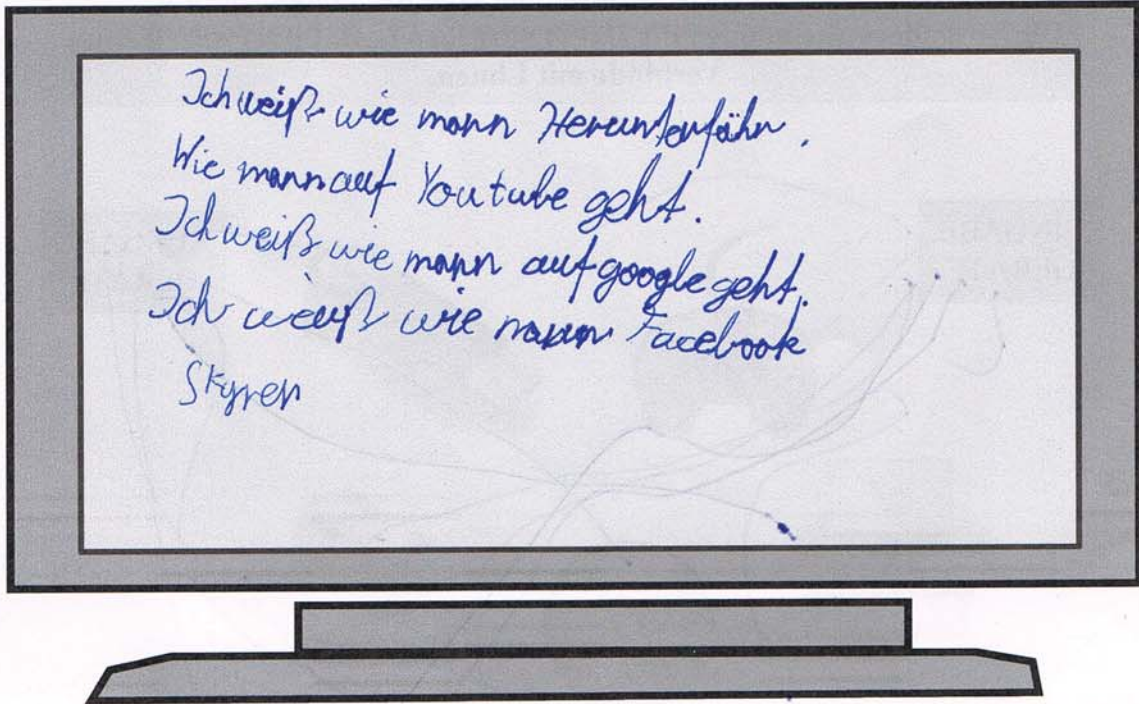 Ich weiß wie mann Herunterfähr.
Wie mann auf Youtube geht.
Ich weiß wie mann auf google geht.
Ich weiß wie mann Facebook
Skyren